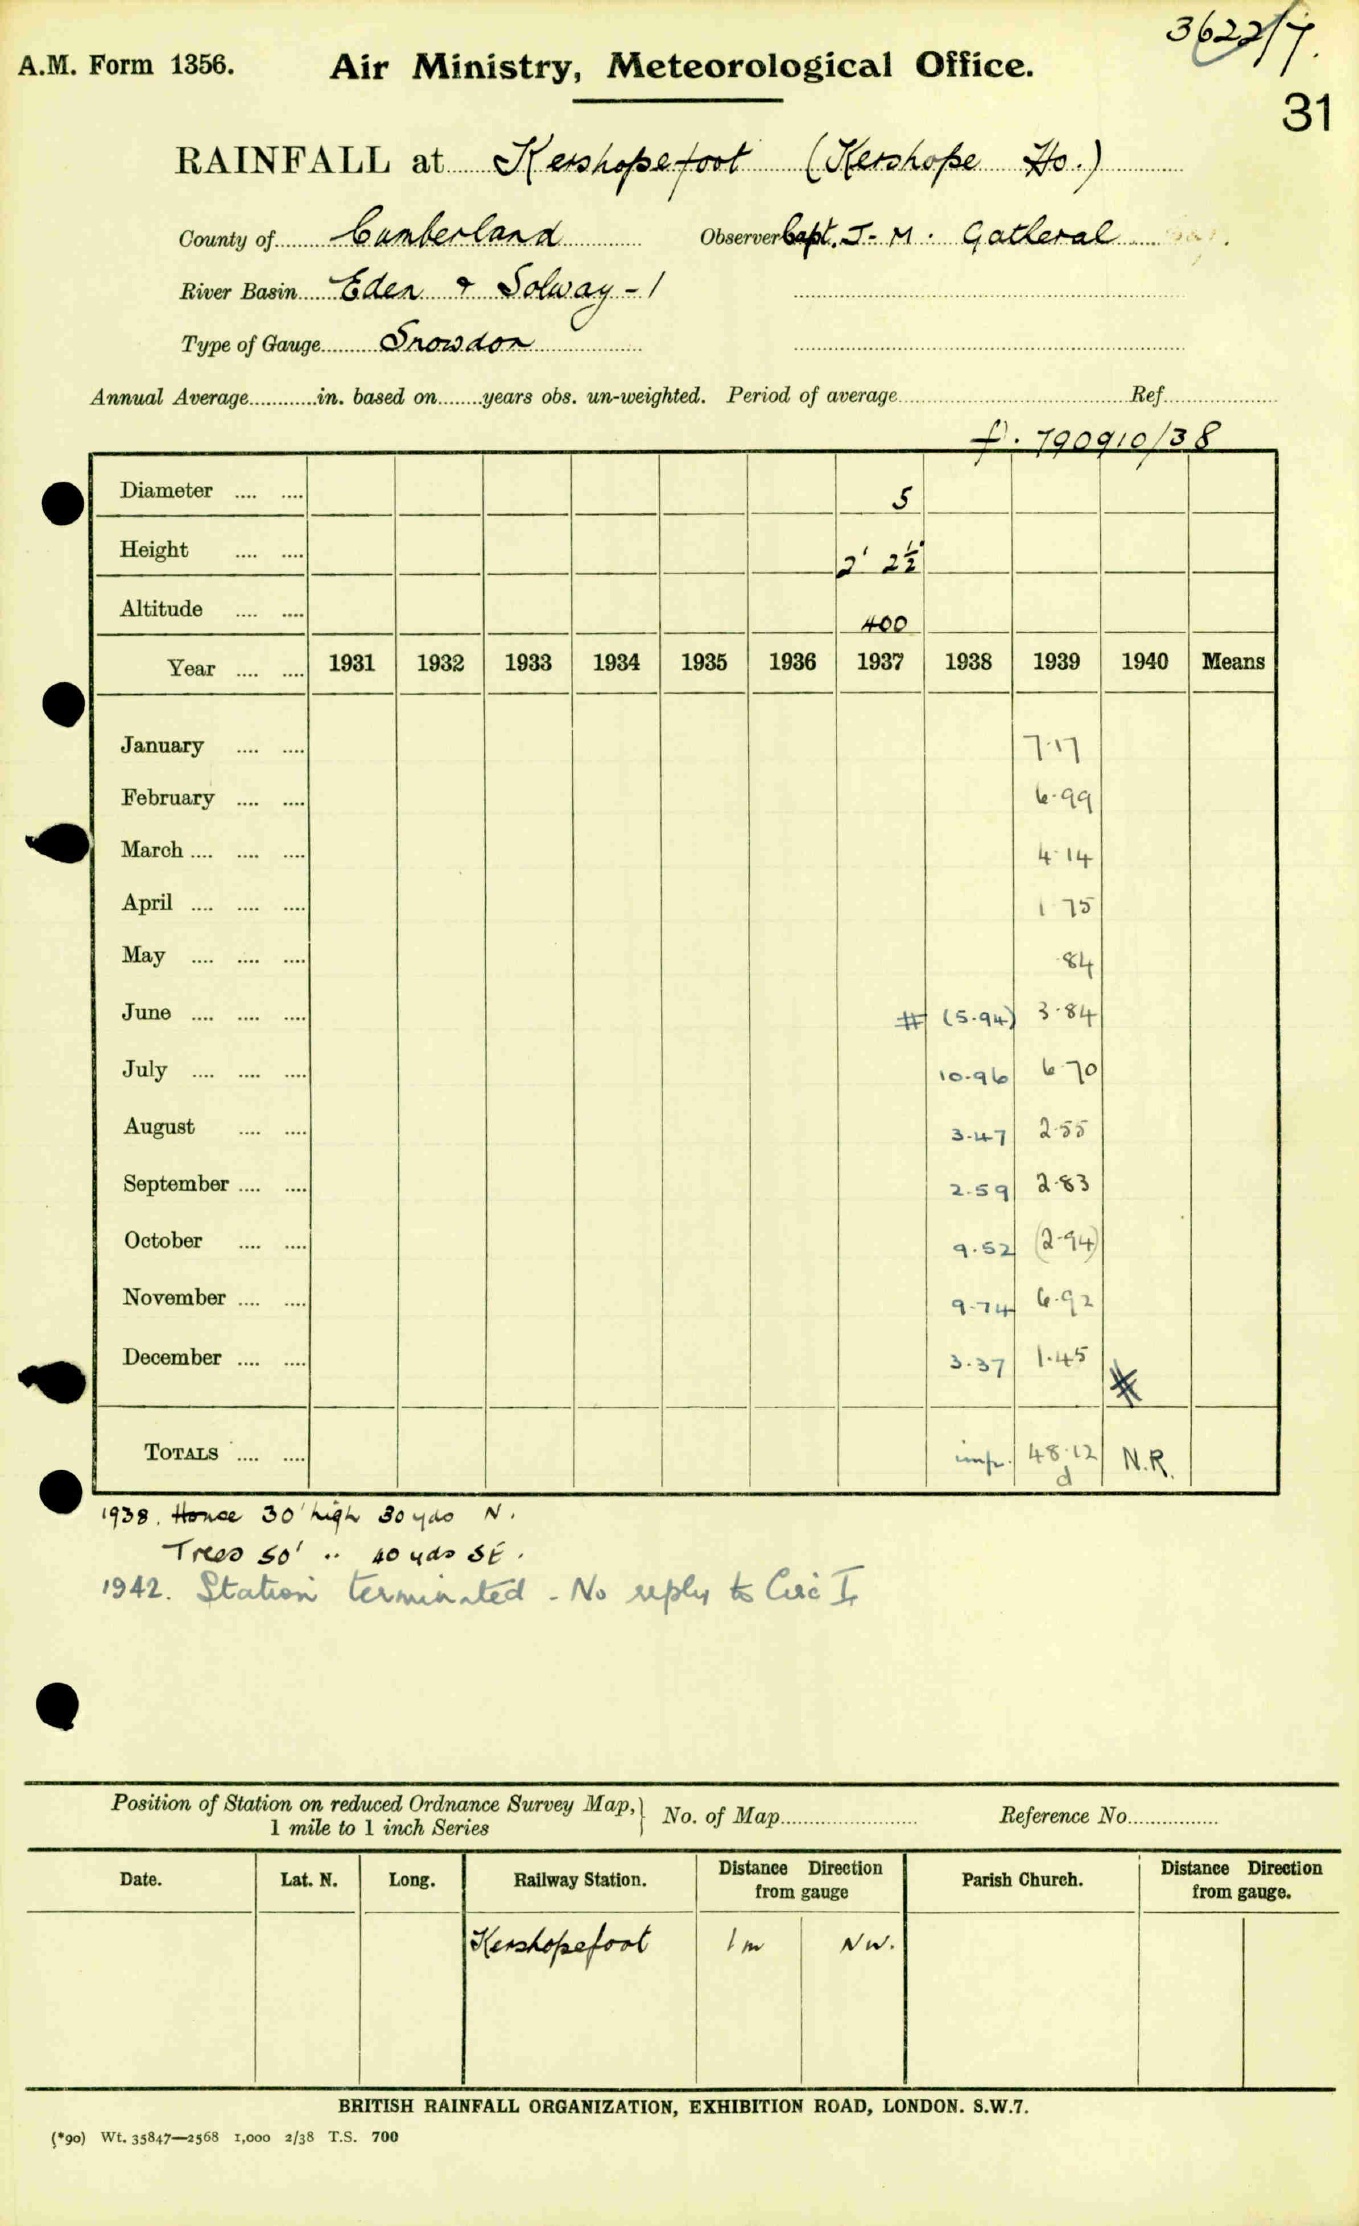 3622/7.
A.M. Form 1356. Air Ministry, Meteorological Office.
31
RAINFALL at Kershopefoot (Kershope Ho.)
County of Cumberland Observer Capt. J. M. Gatheral
River Basin Eden & Solway - 1
Type of Gauge Snowdon
Annual Average............in. based on........years obs. un-weighted. Period of average Ref.
f. 790910/38
Diameter .... .... 5
Height .... .... 2' 2½"
Altitude .... .... 400
Year .... .... 1931 1932 1933 1934 1935 1936 1937 1938 1939 1940 Means
January .... .... 7.17
February .... .... 6.99
March .... .... .... 4.14
April .... .... .... 1.75
May .... .... .... .84
June .... .... .... # (5.94) 3.84
July .... .... .... 10.96 6.70
August .... .... 3.47 2.55
September .... .... 2.59 2.83
October .... .... 9.52 (2.94)
November .... .... 9.74 6.92
December .... .... 3.37 1.45 #
TOTALS .... .... imp. 48.12 N.R.
d
1938. House 30' high 30 yds N.
Trees 50' " 40 yds SE.
1942. Station terminated - No reply to Circ I
Position of Station on reduced Ordnance Survey Map, } No. of Map Reference No.
1 mile to 1 inch Series
Date. Lat. N. Long. Railway Station. Distance Direction Parish Church. Distance Direction
from gauge from gauge.
Kershopefoot 1 m NW.
BRITISH RAINFALL ORGANIZATION, EXHIBITION ROAD, LONDON. S.W.7.
(*90) Wt. 35847—2568 1,000 2/38 T.S. 700